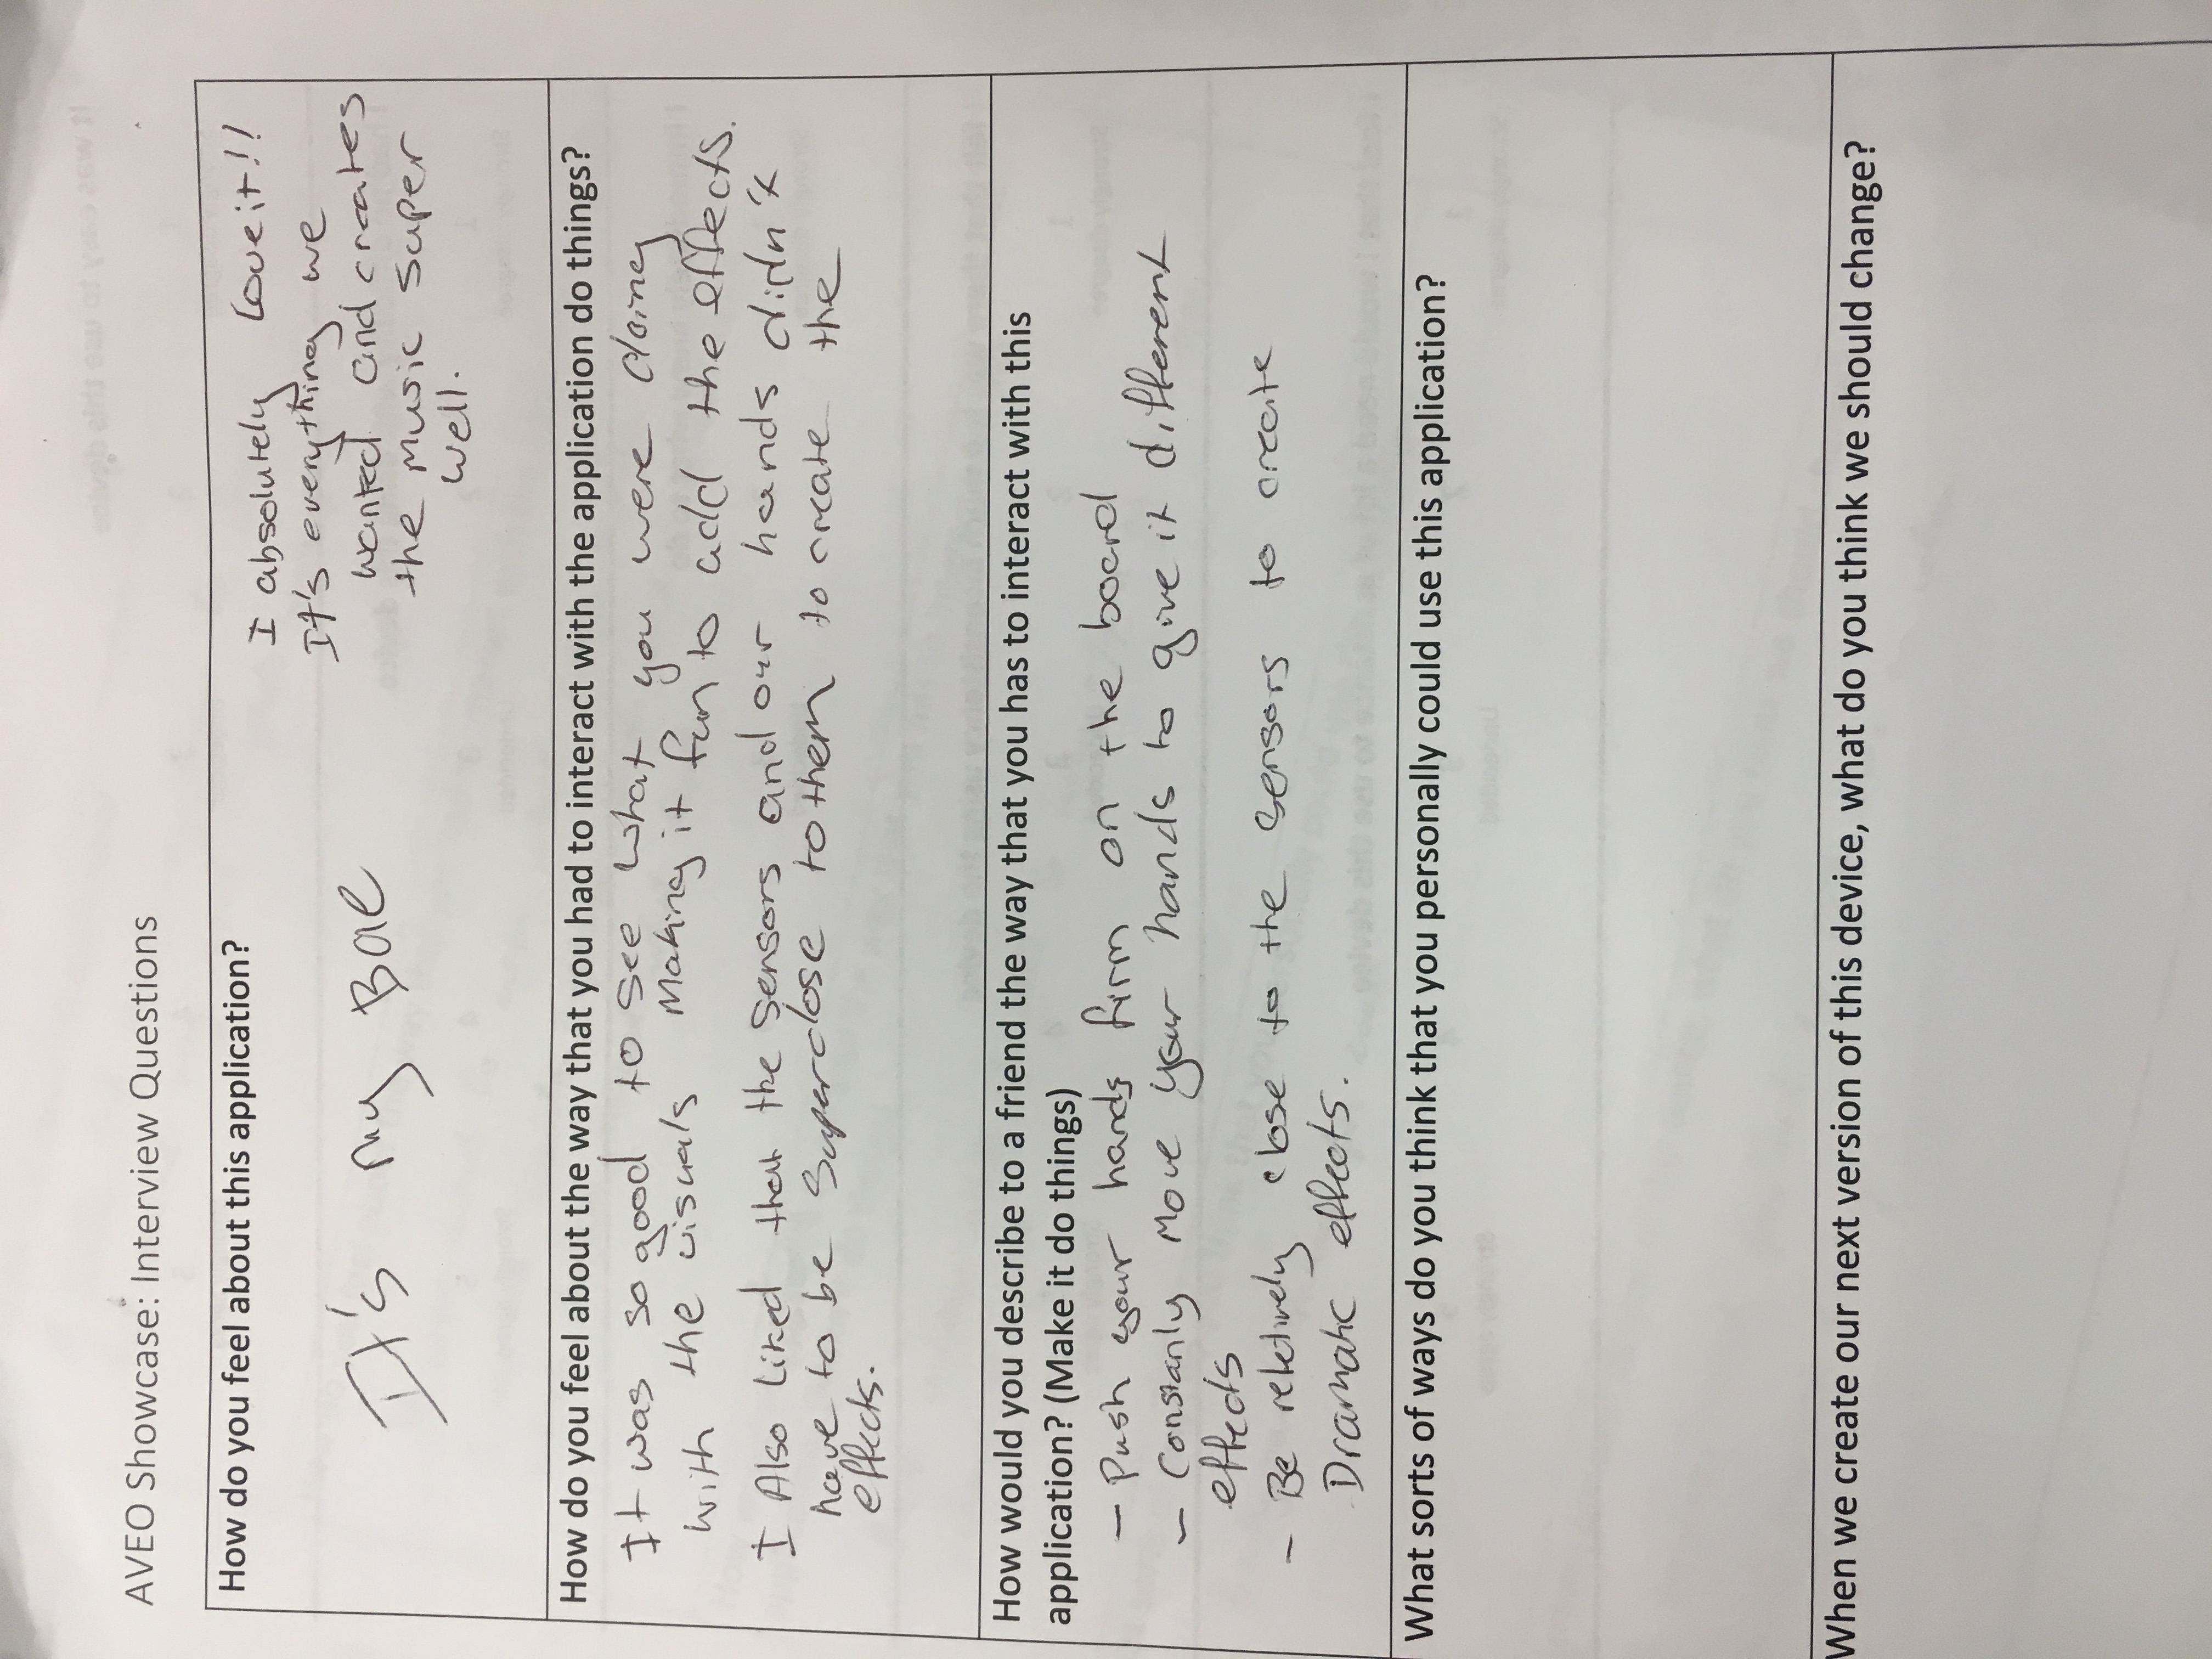 AVEO Showcase: Interview Questions
How do you feel about this application?
It's my Bae
I absolutely Love it!!
It's everything we
wanted and creates
the music super
well.
How do you feel about the way that you had to interact with the application do things?
It was so good to see what you were doing
with the visuals Making it fun to add the effects.
I Also liked that the sensors and our hands didn't
have to be super close to them to create the
effects.
How would you describe to a friend the way that you has to interact with this
application? (Make it do things)
- Push your hands firm on the board
- Constanly move your hands to give it different
effects
- Be reletively close to the sensors to create
Dramatic effects.
What sorts of ways do you think that you personally could use this application?
When we create our next version of this device, what do you think we should change?